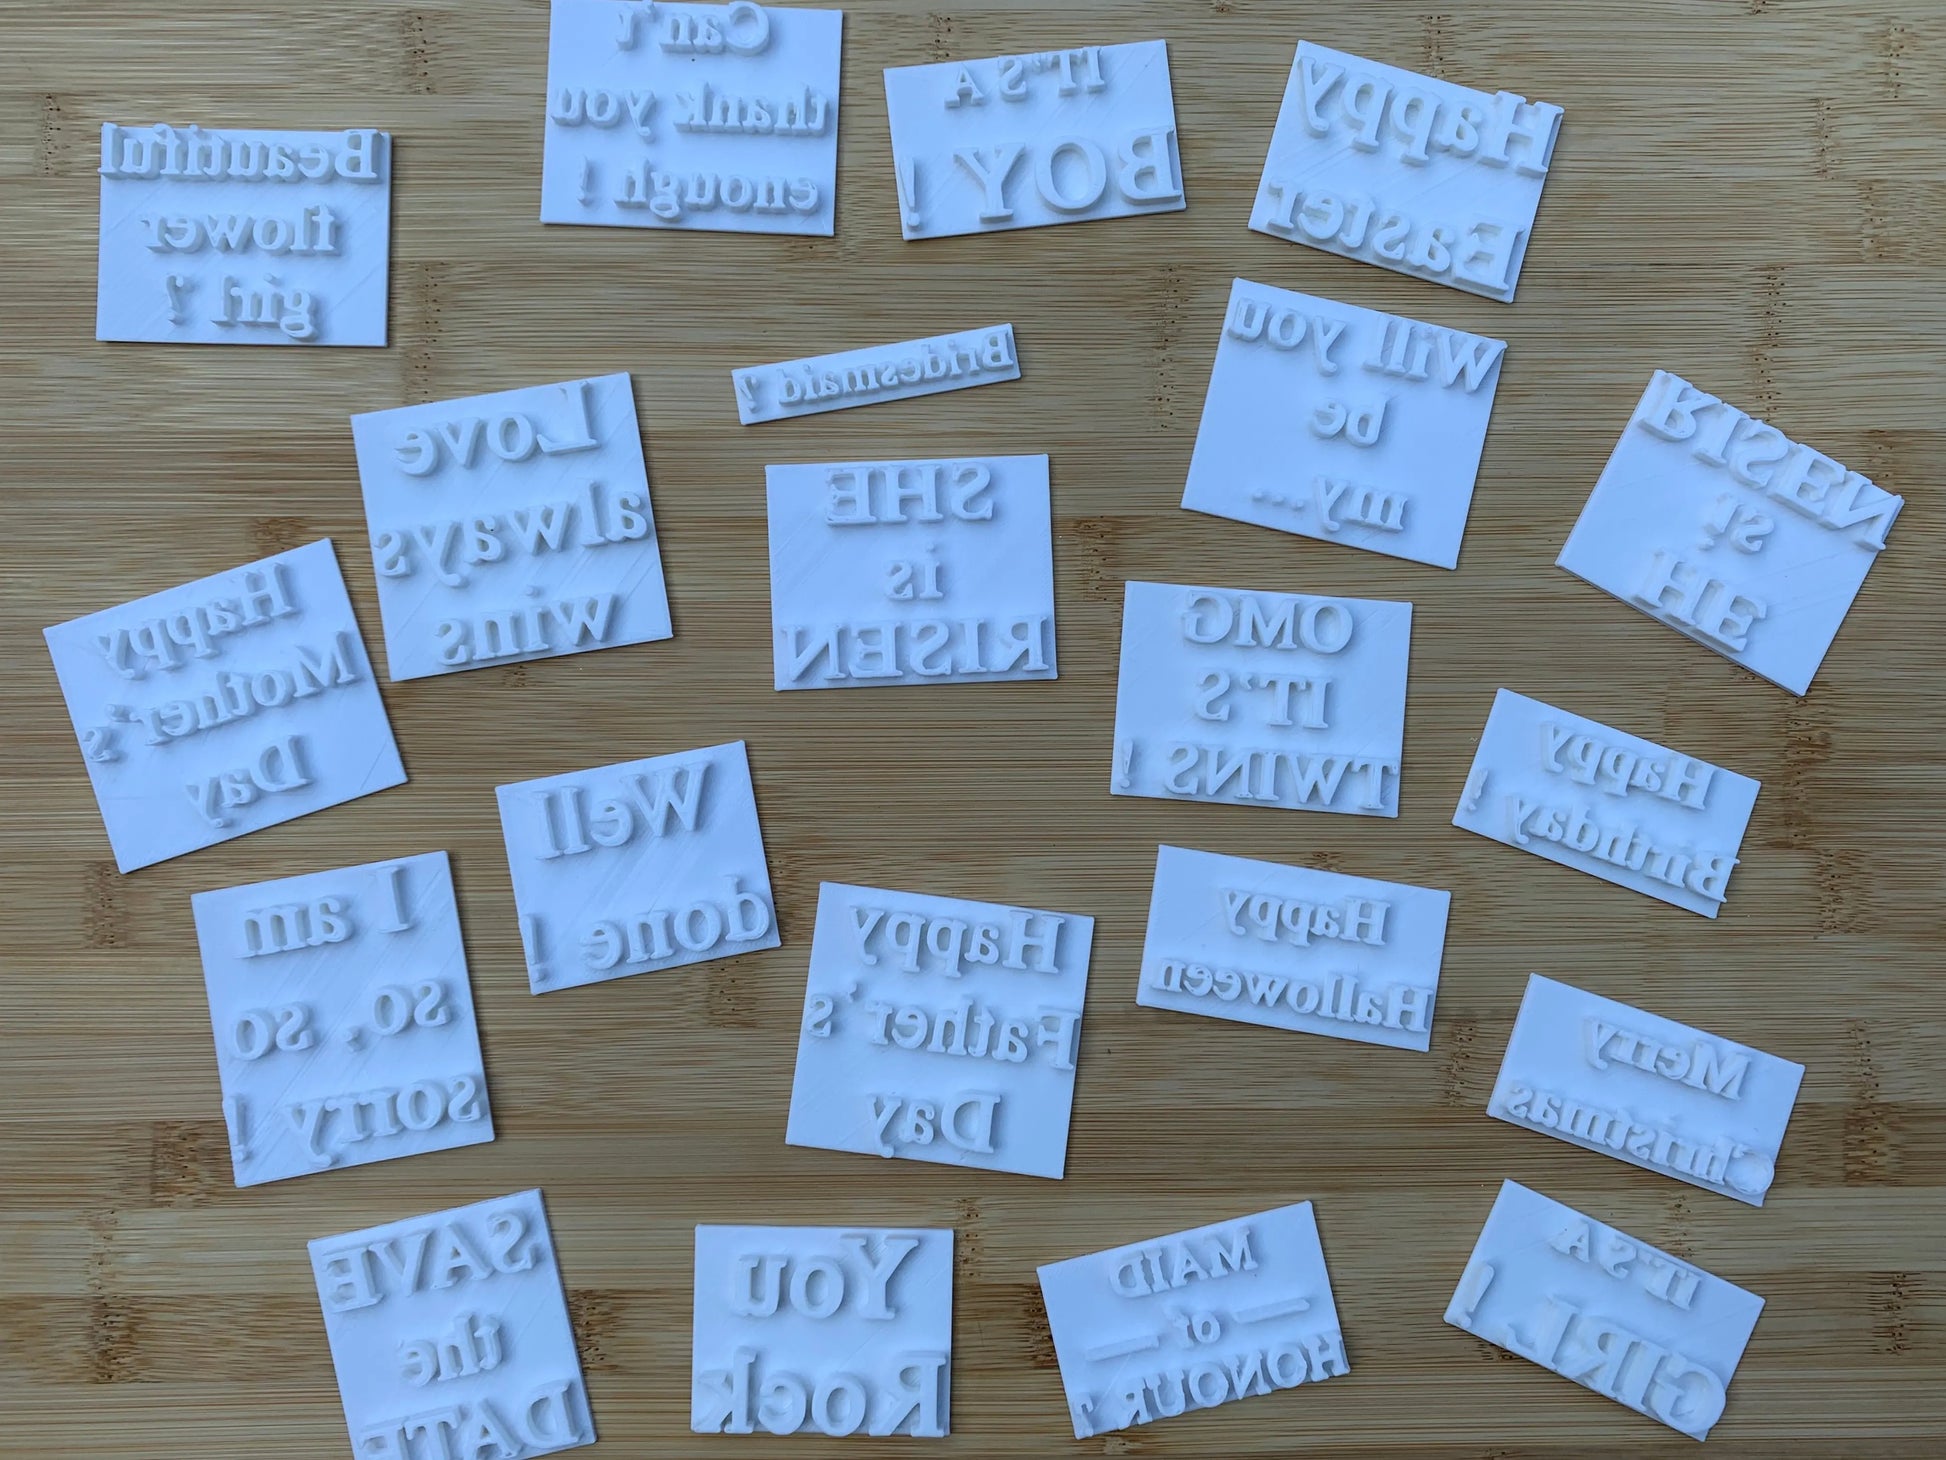 Can't
thank you
enough !
IT'S A
BOY !
Happy
Easter
Beautiful
flower
girl ?
Will you
be
my...
Bridesmaid ?
Love
always
wins
SHE
is
RISEN
HE
is
RISEN
Happy
Mother's
Day
OMG
IT'S
TWINS !
Happy
Birthday !
Well
done !
I am
so, so
sorry !
Happy
Father's
Day
Happy
Halloween
Merry
Christmas
SAVE
the
DATE
You
Rock
MAID
of
HONOUR ?
IT'S A
GIRL !